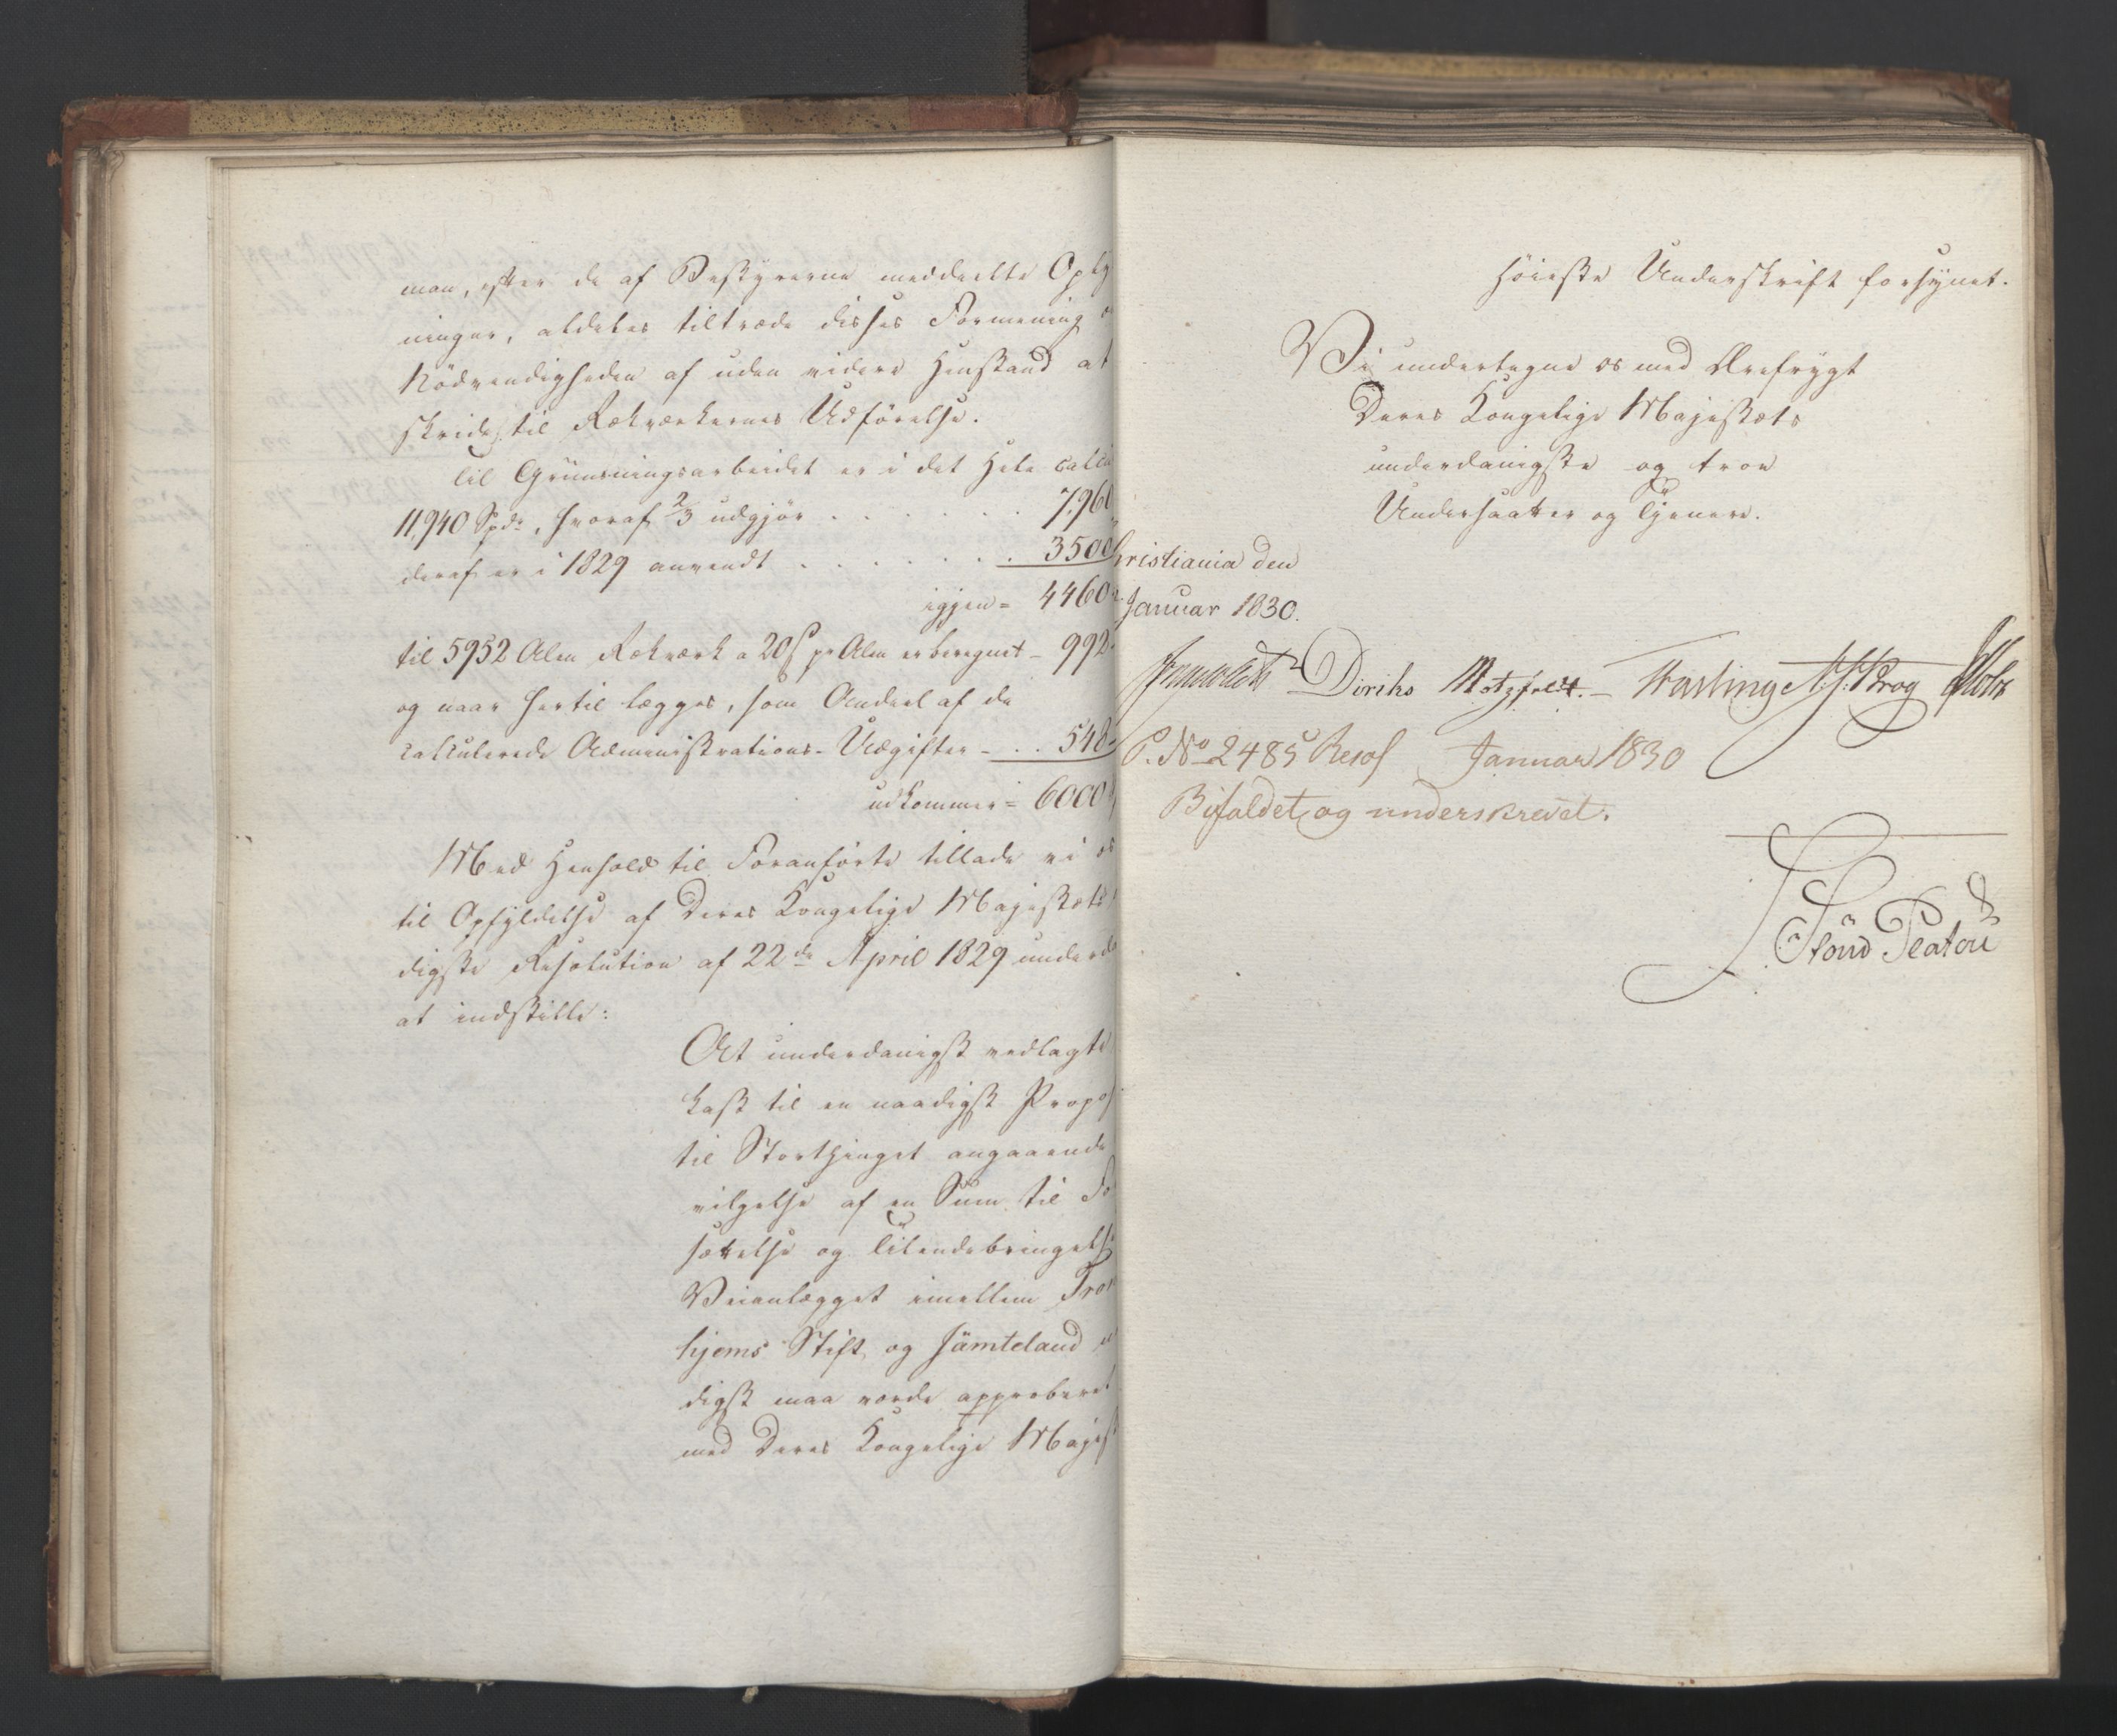 man, efter de af Bestyrerne meddeelte Oply
ninger, aldeles tiltræde disses Formening o
Nödvendigheden af uden videre Henstand at
skride til Rækværkernes Udförelse.
Til Grüusningsarbeidet er i det Hele calcu
11,940 Spd:, hvoraf 2/3 udgjör . . . . . . . 7,960
deraf er i 1829 anvendt . . . . . . . . 3500
igjen = 4460
til 5952 Alen Rækværk a 20 ß pr Alen er beregnet - 992
og naar hertil lægges, som Andeel af de
calkulerede Administrations-Udgifter - . . 548
udkommer = 6000
Med Henhold til Foranførte tillade vi os
til Opfyldelse af Deres Kongelige Majestæts
digste Resolution af 22de April 1829 underda
at indstille:
At underdanigst vedlagte
kast til en naadigst Propos
til Storthinget angaaende
vilgelse af en Sum til Fo
sættelse og Tilendebringelse
Veianlægget imellem Tron
hjems Stift og Jämteland
digst maa vorde approberet
med Deres Kongelige Majest
Höieste Underskrift forsynet.
Vi undertegne os med Ærefrygt
Deres Kongelige Majestæts
underdanigste og troe
Undersaatter og Tjenere.
hristiania den
Januar 1830.
Diriks Motzfeldt. - Fasting Krog Holst
P. No 2485 Resol Januar 1830
Bifaldet og underskrevet.
Stoud Platou